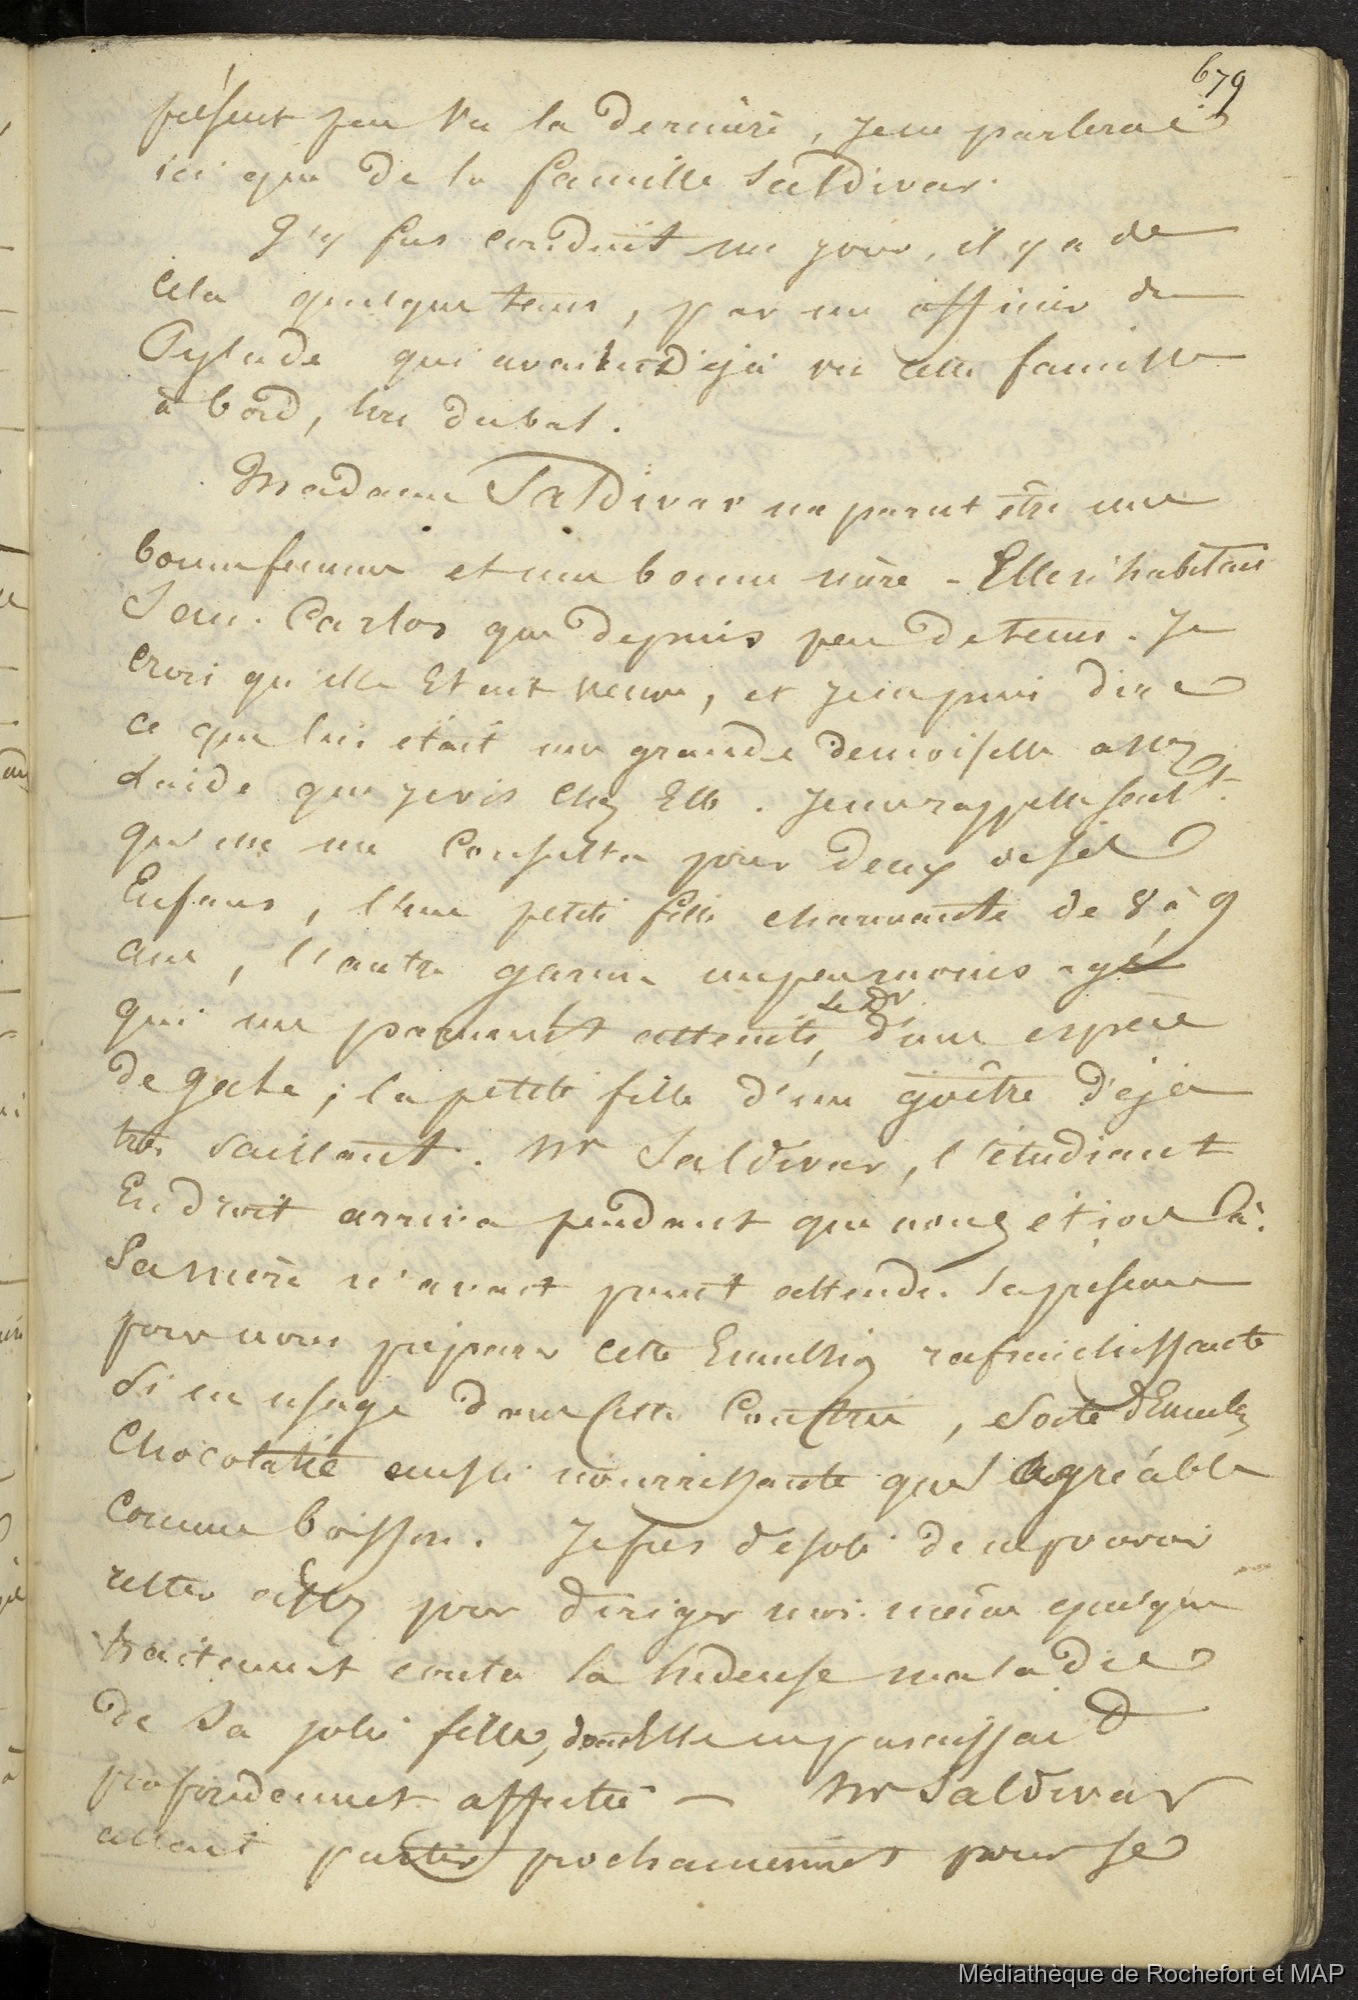 679
présent peu vu la dernière, je ne parlerai
ici que de la famille Saldivar.
J'y fus conduit un jour, il y a de
cela quelque tems, par un officier de
Pylade qui avait déjà vu cette famille
à bord, lors du bal.
Madame Saldivar me parut être une
bonne femme et une bonne mère - Elle n'habitait
San. Carlos que depuis peu de tems. Je
crois qu'elle Etait veuve, et je ne puis dire
ce que lui était une grande demoiselle assez
laide que je vis chez Elle. Je me rappelle seult.
qu'on me consulta pour deux de ses
Enfans, l'une petite fille charmante de 8 à 9
ans, l'autre garçon un peu moins agé
qui me parurent atteints, le Dr d'une espèce
de gale; la petite fille d'un goître déjà
très saillant. Mr Saldivar, l'étudiant
En droit arriva pendant que nous étions là.
Sa mère n'avait point attendu sa présence
pour nous préparer cette Emulsion rafraichissante
si en usage dans cette contrée, sorte d'Emulson
chocolatée aussi nourrissante que agréable
comme boisson. Je fus désolé de ne pouvoir
rester assez pour diriger moi-même quelque
traitement contre la hideuse maladie
de sa jolie fille, dont Elle me paraissait
profondement affectée — Mr Saldivar
allant partir prochainement pour se
Médiathèque de Rochefort et MAP